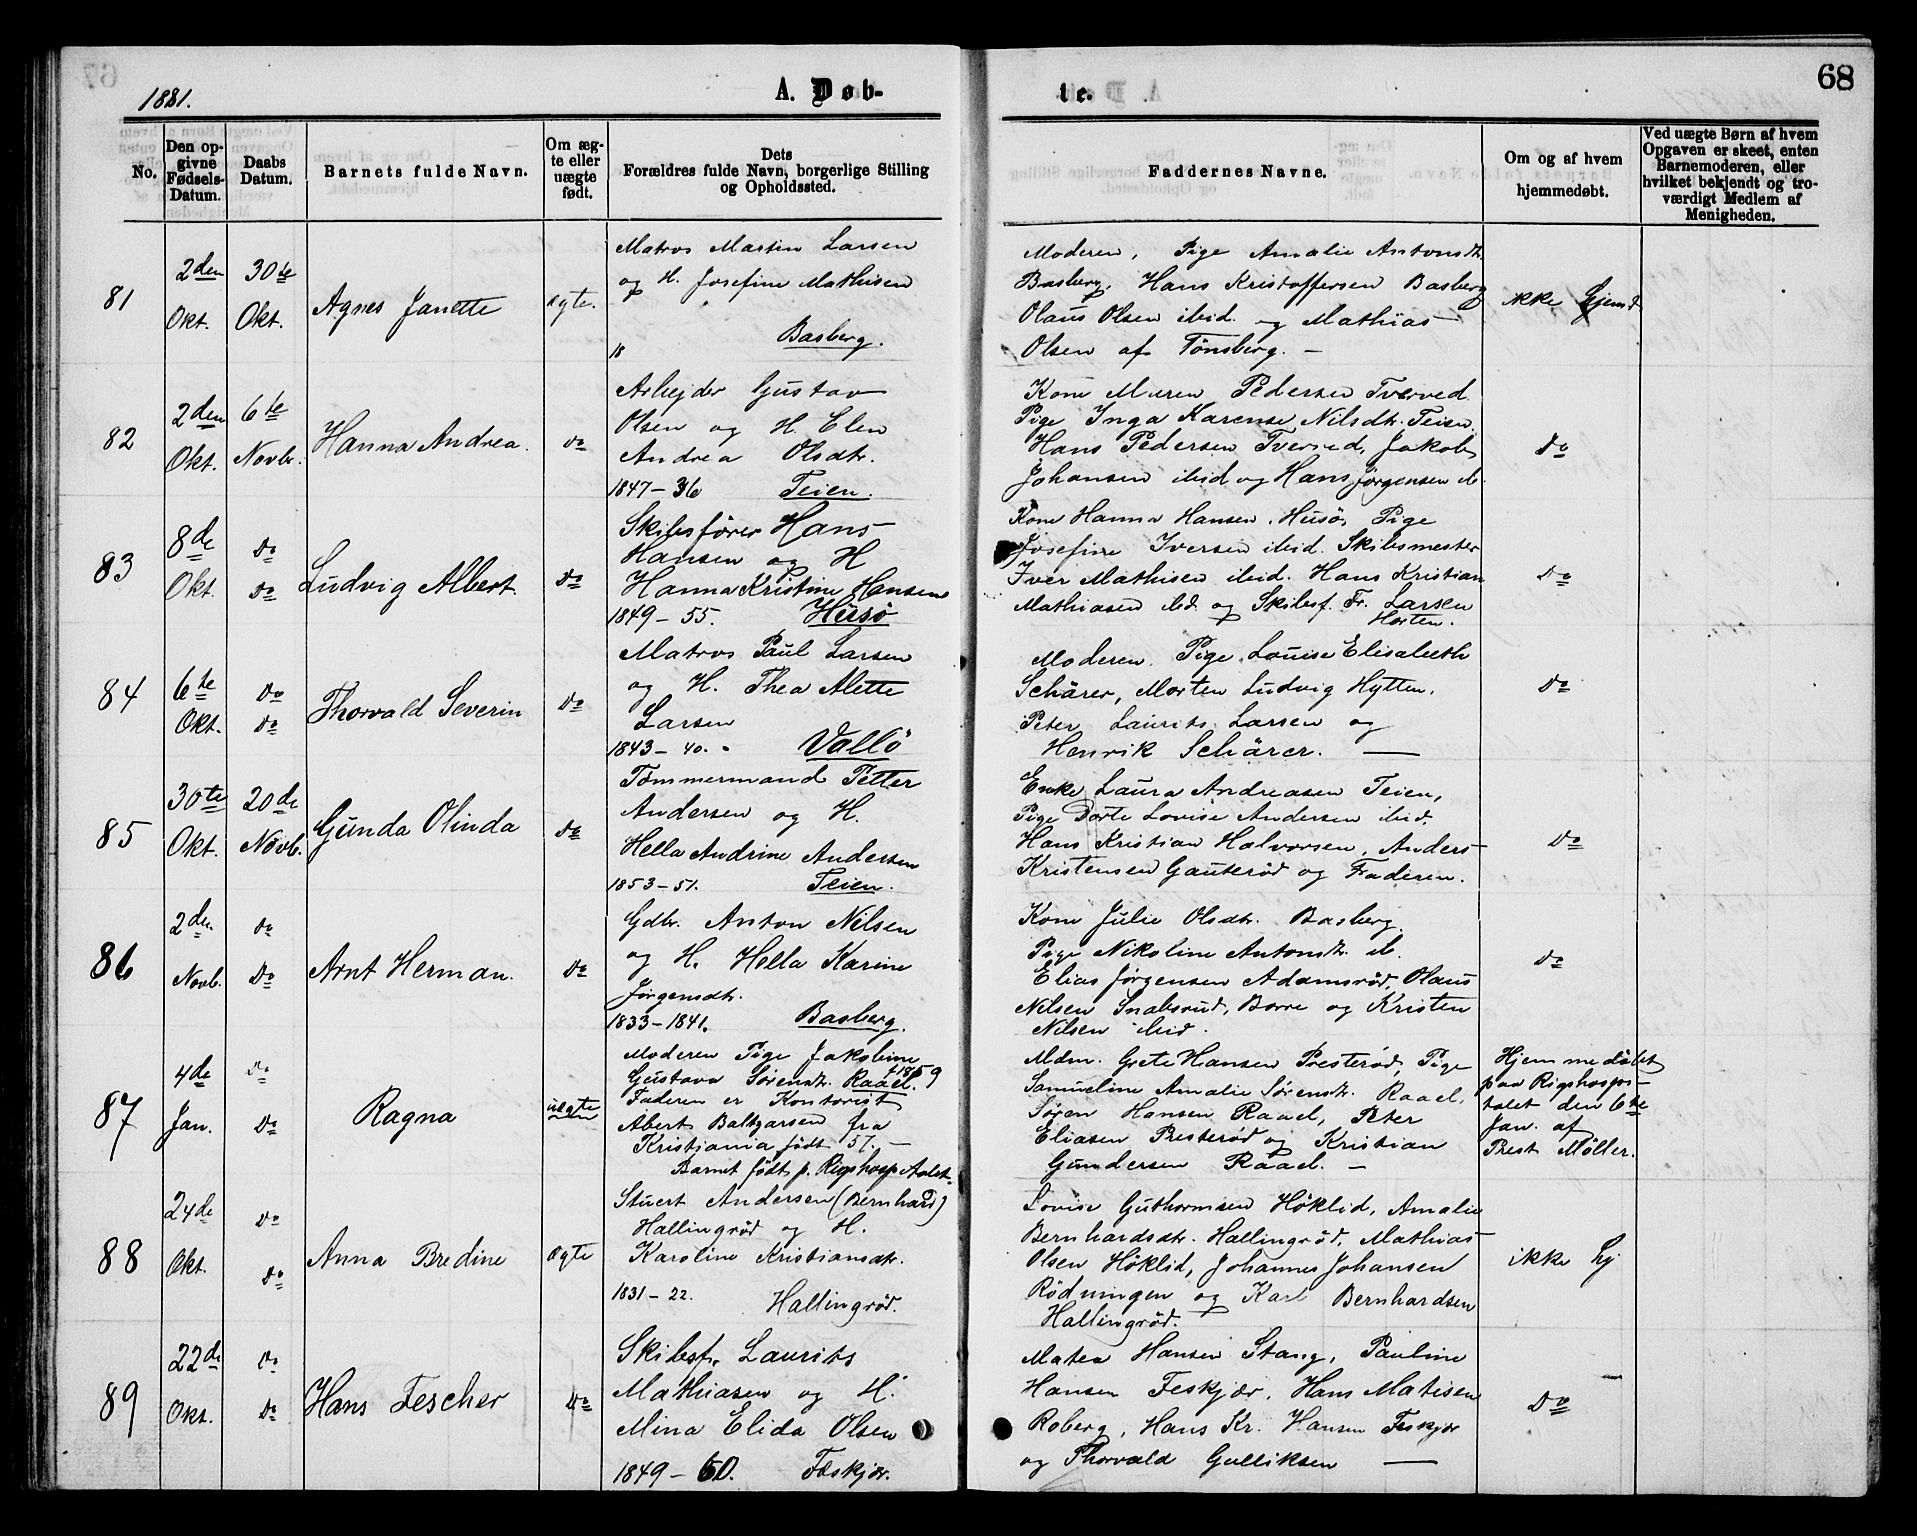 1881.
A. Døb-
te.
68
No.
Den op-
givne
Fødsels-
Datum.
Daabs
Datum.
Barnets fulde Navn.
Om æg-
te eller
uægte
født.
Dets
Forældres fulde Navn, borgerlige Stilling
og Opholdssted.
Faddernes Navne.
Om og af hvem
hjemmedøbt.
Ved uægte Børn af hvem
Opgaven er skeet, enten
Barnemoderen, eller
hvilket bekjendt og tro-
værdigt Medlem af
Menigheden.
81
2den
Okt.
30te
Okt.
Agnes Janette
ægte.
Matros Martin Larsen
og H. Josefine Mathisen
18 Basberg.
Moderen, Pige Amalie Antonsdt.
Basberg, Hans Kristoffersen Basberg
Olaus Olsen ibid. og Mathias
Olsen af Tønsberg. —
ikke hjemd.
82
2den
Okt.
6te
Novbr.
Hanna Andrea.
do
Arbejder Gustav
Olsen og H. Elen
Andrea Olsdtr.
1847 - 36 Teien.
Kone Maren Pedersen Tverved.
Pige Inga Karense Nilsdtr. Teien.
Hans Pedersen Tverved, Jakob
Johansen ibid og Hans Jørgensen ib.
Do
83
8de
Okt.
do
do
Ludvig Albert.
do
Skibsfører Hans
Hansen og H
Hanna Kristine Hansen
1849 - 55. Husø
Kone Hanna Hansen, Husø, Pige
Josefine Iversen ibid. Skibsmester
Iver Mathisen ibid. Hans Kristian
Mathiasen ibd. og Skibsf. Fr. Larsen
Horten.
Do
84
6te
Okt.
Do
do
Thorvald Severin
do
Matros Paul Larsen
og H. Thea Alette
Larsen
1843 - 40. - Vallö
Moderen. Pige Louise Elisabeth
Schärer, Morten Ludvig Hytten,
Peter Laurits Larsen og
Henrik Schärer. —
Do
85
30te
Okt.
20de
Novb.
Gunda Olinda
do
Tømmermand Petter
Andersen og H.
Hella Andrine Andersen
1853 - 51. Teien.
Enke Laura Andreasen Teien,
Pige Dorte Lovise Andersen ibid.
Hans Kristian Halvorsen, Anders
Kristensen Gauterød og Faderen.
Do
86
2den.
Novb.
do
Do
Arnt Herman.
do
Gdbr. Anton Nilsen
og H. Hella Karine
Jørgensdtr.
1833 - 1841. Basberg.
Kone Julie Olsdtr. Basberg.
Pige Nikoline Antonsdt. ib.
Elias Jørgensen Adamsrød, Olaus
Nilsen Snabsrud, Borre og Kristen
Nilsen ibid.
Do
87
4de
Jan.
Do
Do
Ragna
uægte
Moderen Pige Jakobine
Gustava Sørensdt. Raael. f 1859
Faderen er Kontorist
Abert Baltzarsen fra
Kristjania født 57. —
Barnet født p. Rigshosp
Mdm. Grete Hansen Presterød, Pige
Samueline Amalie Sørensdt. Raael,
Søren Hansen Raael, Peter
Eliasen Presterød og Kristian
Gundersen Raael. —
Hjemmedøbt
paa Rigshospi-
talet den 6te
Jan. af
Prest Møller.
88
24de
Okt.
Do
do
Anna Bredine
ægte
Stuert Andersen (Bernhard)
Hallingrød og H.
Karoline Kristiansdtr.
1831 - 22. Hallingrød.
Lovise Guthormsen Høklid, Amalie
Bernhardsdtr. Hallingrød, Mathias
Olsen Høklid, Johannes Johansen
Rødningen og Karl Bernhardsen
Hallingrød.
ikke hj
89
22de
Okt.
do
do
Hans Fescher
do
Skibsf. Laurits
Mathiasen og H.
Mina Elida Olsen
1849 - 60. Feskjær.
Matea Hansen Stang, Pauline
Hansen Feskjær, Hans Matisen
Roberg, Hans Kr. Hansen Feskjær
og Thorvald Gulliksen —
Do